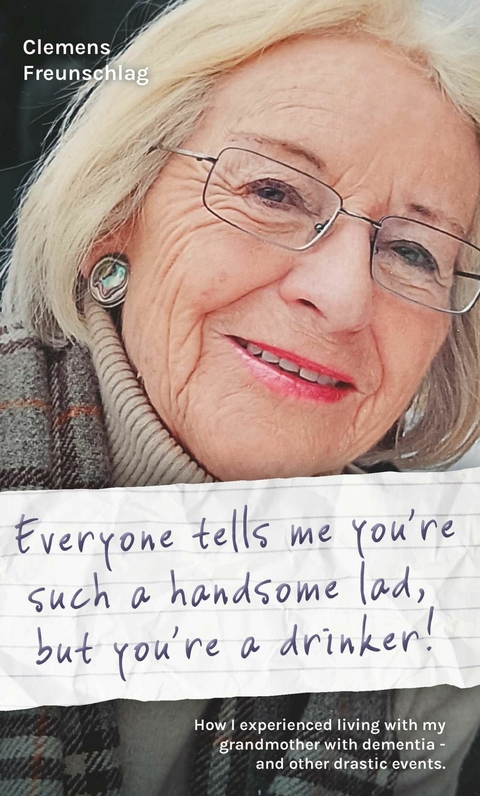 Clemens
Freunschlag
Everyone tells me you're
such a handsome lad,
but you're a drinker!
How I experienced living with my
grandmother with dementia -
and other drastic events.